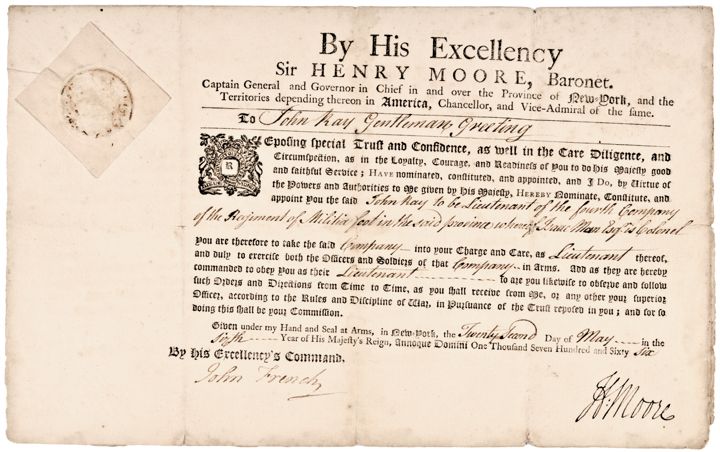 By His Excellency
Sir HENRY MOORE, Baronet.
Captain General and Governor in Chief in and over the Province of New-York, and the
Territories depending thereon in America, Chancellor, and Vice-Admiral of the same.
To John Kay Gentleman Greeting
REposing special Trust and Confidence, as well in the Care Diligence, and
Circumspection, as in the Loyalty, Courage, and Readiness of you to do His Majesty good
and faithful Service; HAVE nominated, constituted, and appointed, and I Do, by Virtue of
the Powers and Authorities to Me given by His Majesty, HEREBY Nominate, Constitute, and
appoint You the said John Kay to be Lieutenant of the fourth Company
of the Regiment of Militia foot in the said province whereof Isaac Man Esqr. is Colonel
You are therefore to take the said Company into your Charge and Care, as Lieutenant thereof,
and duly to exercise both the Officers and Soldiers of that Company in Arms. And as they are hereby
commanded to obey you as their Lieutenant so are you likewise to observe and follow
such Orders and Directions from Time to Time, as you shall receive from Me, or any other your superior
Officer, according to the Rules and Discipline of War, in Pursuance of the Trust reposed in you; and for so
doing this shall be your Commission.
Given under my Hand and Seal at Arms, in New-York, the Twenty Second Day of May in the
Sixth Year of His Majesty's Reign, Annoque Domini One Thousand Seven Hundred and Sixty Six
By His Excellency's Command.
John French
H: Moore